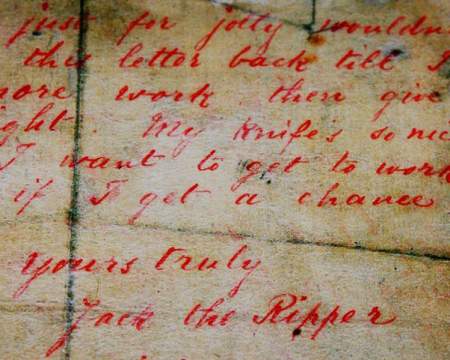 just for jolly wouldn
this letter back till I
more work. then give
ight. My knifes so nic
I want to get to work
if I get a chance
Yours truly
Jack the Ripper